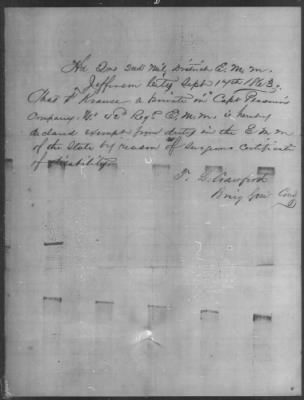 Hd Qrs 2nd Mil. District E.M.M.
Jefferson City Sept 17th 1863.
Chas F Krause a private in Capt
Company No 42d Regt E.M.M. is hereby
declared exempt from duty in the E M M
of the State by reason of Surgeons Certificate
of disability.
T. D. Crawford
Brig Gen Comd